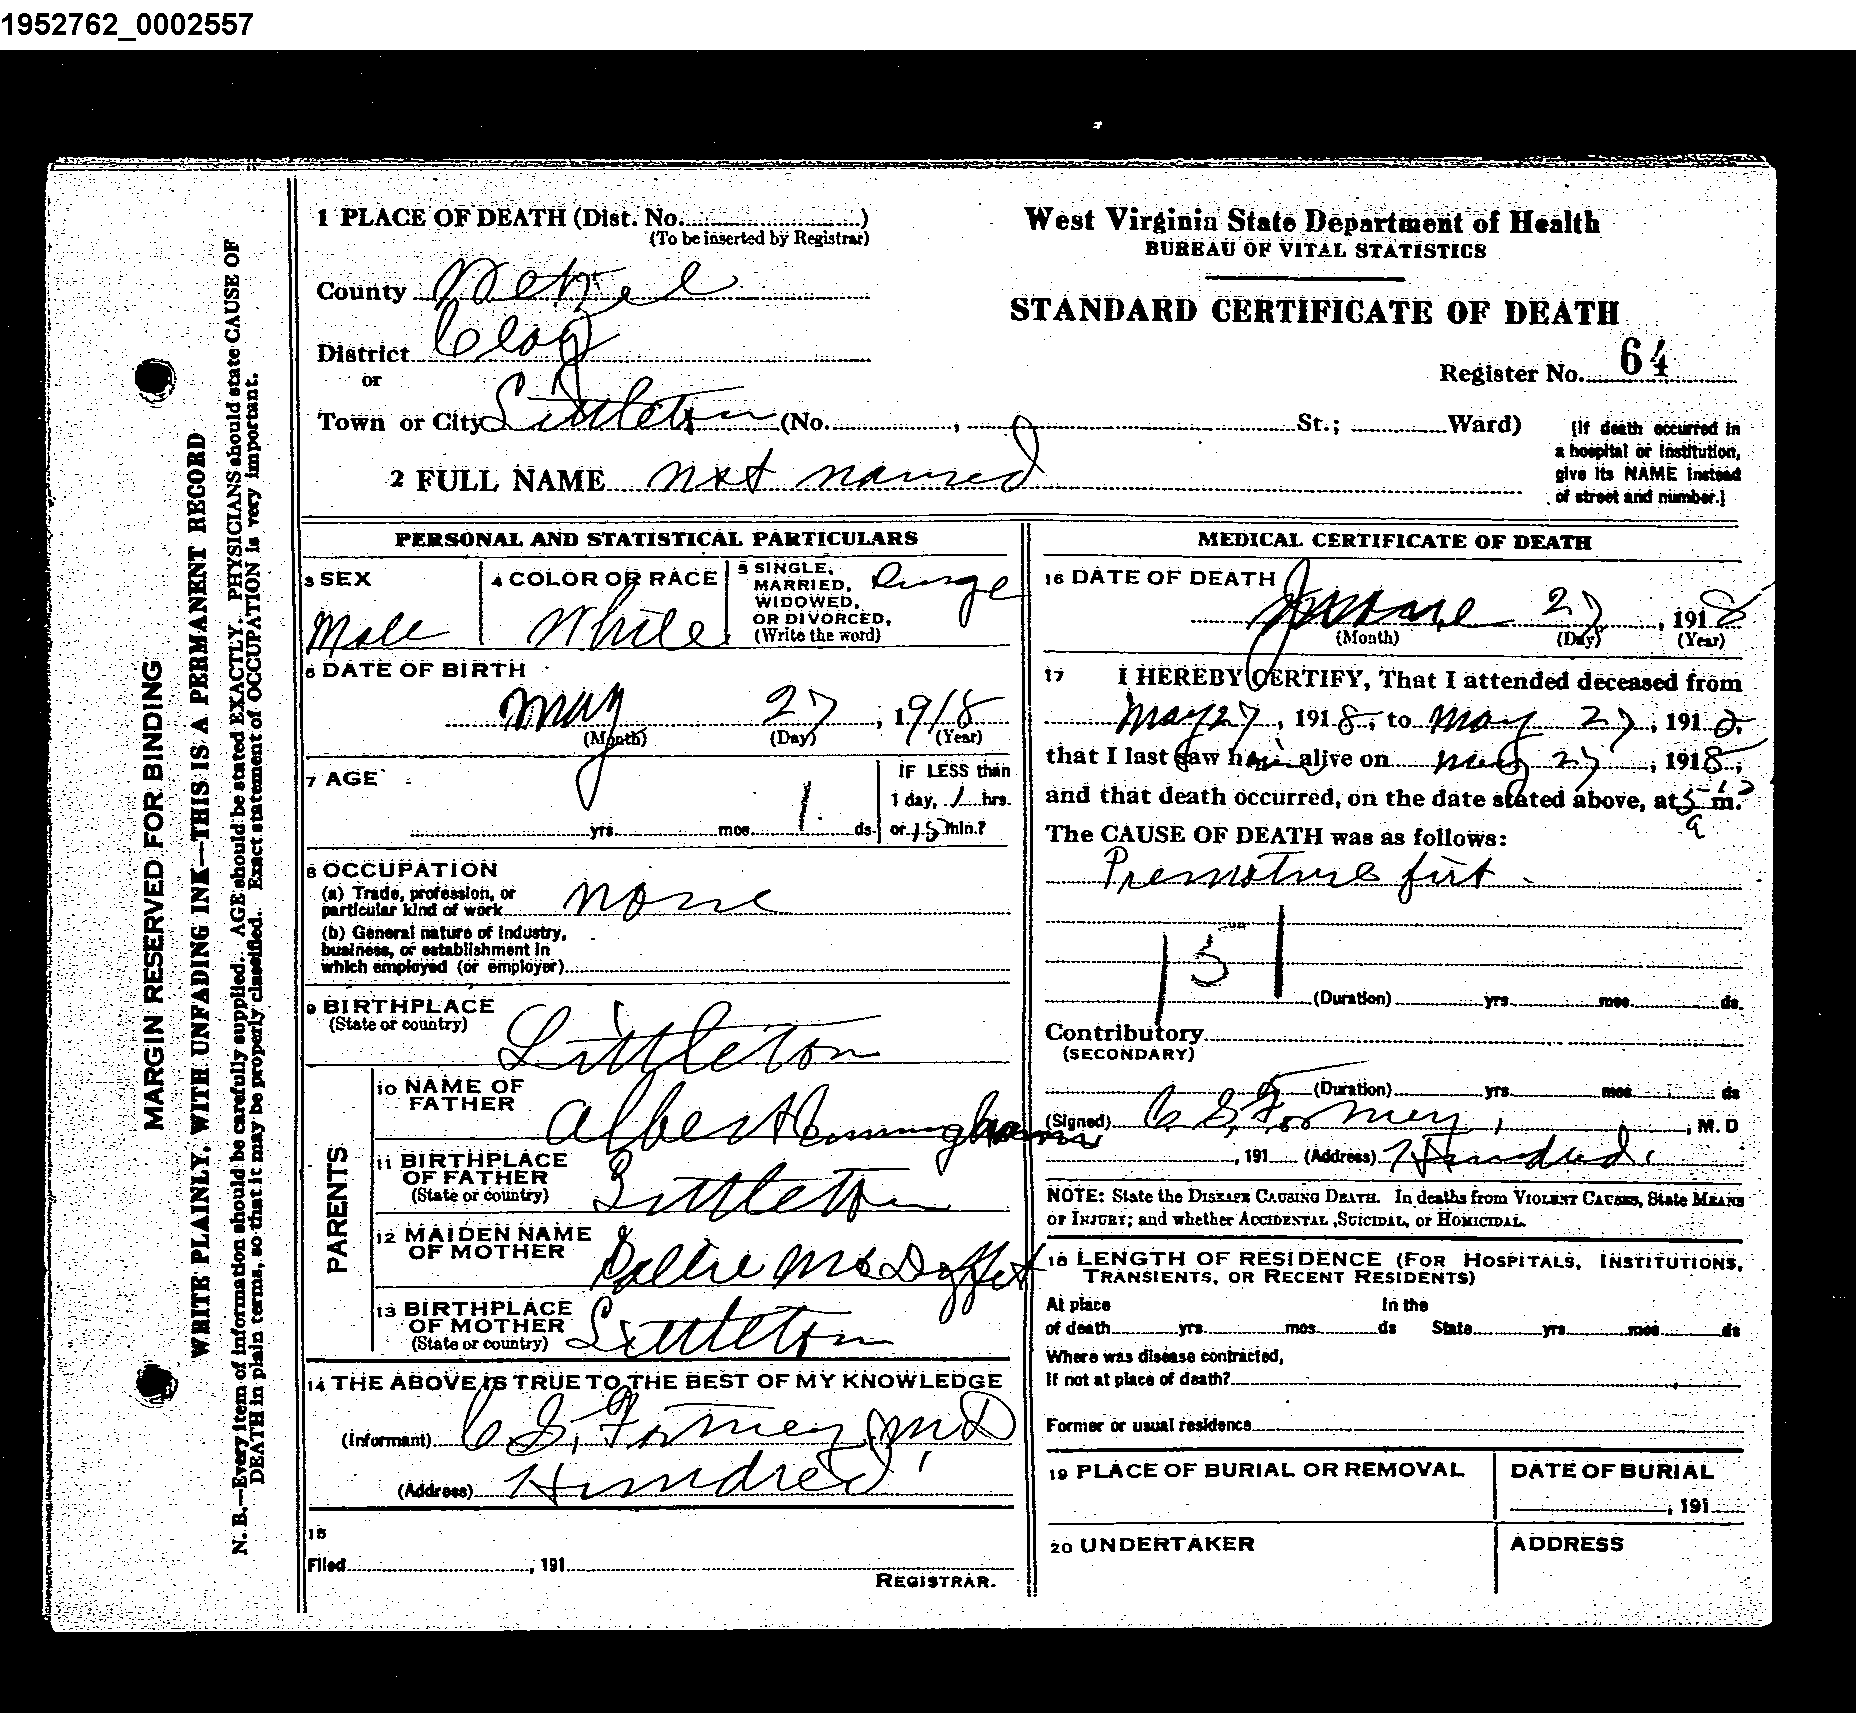 1952762_0002557
1 PLACE OF DEATH (Dist. No. )
(To be inserted by Registrar)
County Wetzel
District Clay
or
Town or City Littleton (No. , St.; Ward)
2 FULL NAME not named
West Virginia State Department of Health
BUREAU OF VITAL STATISTICS
STANDARD CERTIFICATE OF DEATH
Register No. 64
[If death occurred in
a hospital or institution,
give its NAME instead
of street and number.]
PERSONAL AND STATISTICAL PARTICULARS
3 SEX
Male
4 COLOR OR RACE
White
5 SINGLE,
MARRIED,
WIDOWED,
OR DIVORCED,
(Write the word)
6 DATE OF BIRTH
May 27, 1918
(Month) (Day) (Year)
7 AGE
yrs. mos. 1 ds.
IF LESS than
1 day, 1 hrs.
or 15 min.?
8 OCCUPATION
(a) Trade, profession, or
particular kind of work none
(b) General nature of industry,
business, or establishment in
which employed (or employer)
9 BIRTHPLACE
(State or country) Littleton
PARENTS
10 NAME OF
FATHER Albert Cunningham
11 BIRTHPLACE
OF FATHER
(State or country) Littleton
12 MAIDEN NAME
OF MOTHER
13 BIRTHPLACE
OF MOTHER
(State or country) Littleton
14 THE ABOVE IS TRUE TO THE BEST OF MY KNOWLEDGE
(Informant) C S, Forney MD
(Address) Hundred
15
Filed , 191
REGISTRAR.
MEDICAL CERTIFICATE OF DEATH
16 DATE OF DEATH
27, 1918
(Month) (Day) (Year)
17 I HEREBY CERTIFY, That I attended deceased from
May 27, 1918, to May 27, 1918
that I last saw him alive on May 27, 1918,
and that death occurred, on the date stated above, at 5 m.
a
The CAUSE OF DEATH was as follows:
Premature
151
(Duration) yrs. mos. ds.
Contributory
(SECONDARY)
(Duration) yrs. mos. ds
(Signed) C S, Forney, M. D
, 191 (Address) Hundred.
NOTE: State the DISEASE CAUSING DEATH. In deaths from VIOLENT CAUSES, State MEANS
OF INJURY; and whether ACCIDENTAL ,SUICIDAL, or HOMICIDAL.
18 LENGTH OF RESIDENCE (FOR HOSPITALS, INSTITUTIONS,
TRANSIENTS, OR RECENT RESIDENTS)
At place In the
of death yrs. mos. ds State yrs. mos. ds
Where was disease contracted,
If not at place of death?
Former or usual residence
19 PLACE OF BURIAL OR REMOVAL
DATE OF BURIAL
, 191
20 UNDERTAKER
ADDRESS
MARGIN RESERVED FOR BINDING
WRITE PLAINLY, WITH UNFADING INK—THIS IS A PERMANENT RECORD
N. B.—Every item of information should be carefully supplied. AGE should be stated EXACTLY. PHYSICIANS should state CAUSE OF
DEATH in plain terms, so that it may be properly classified. Exact statement of OCCUPATION is very important.